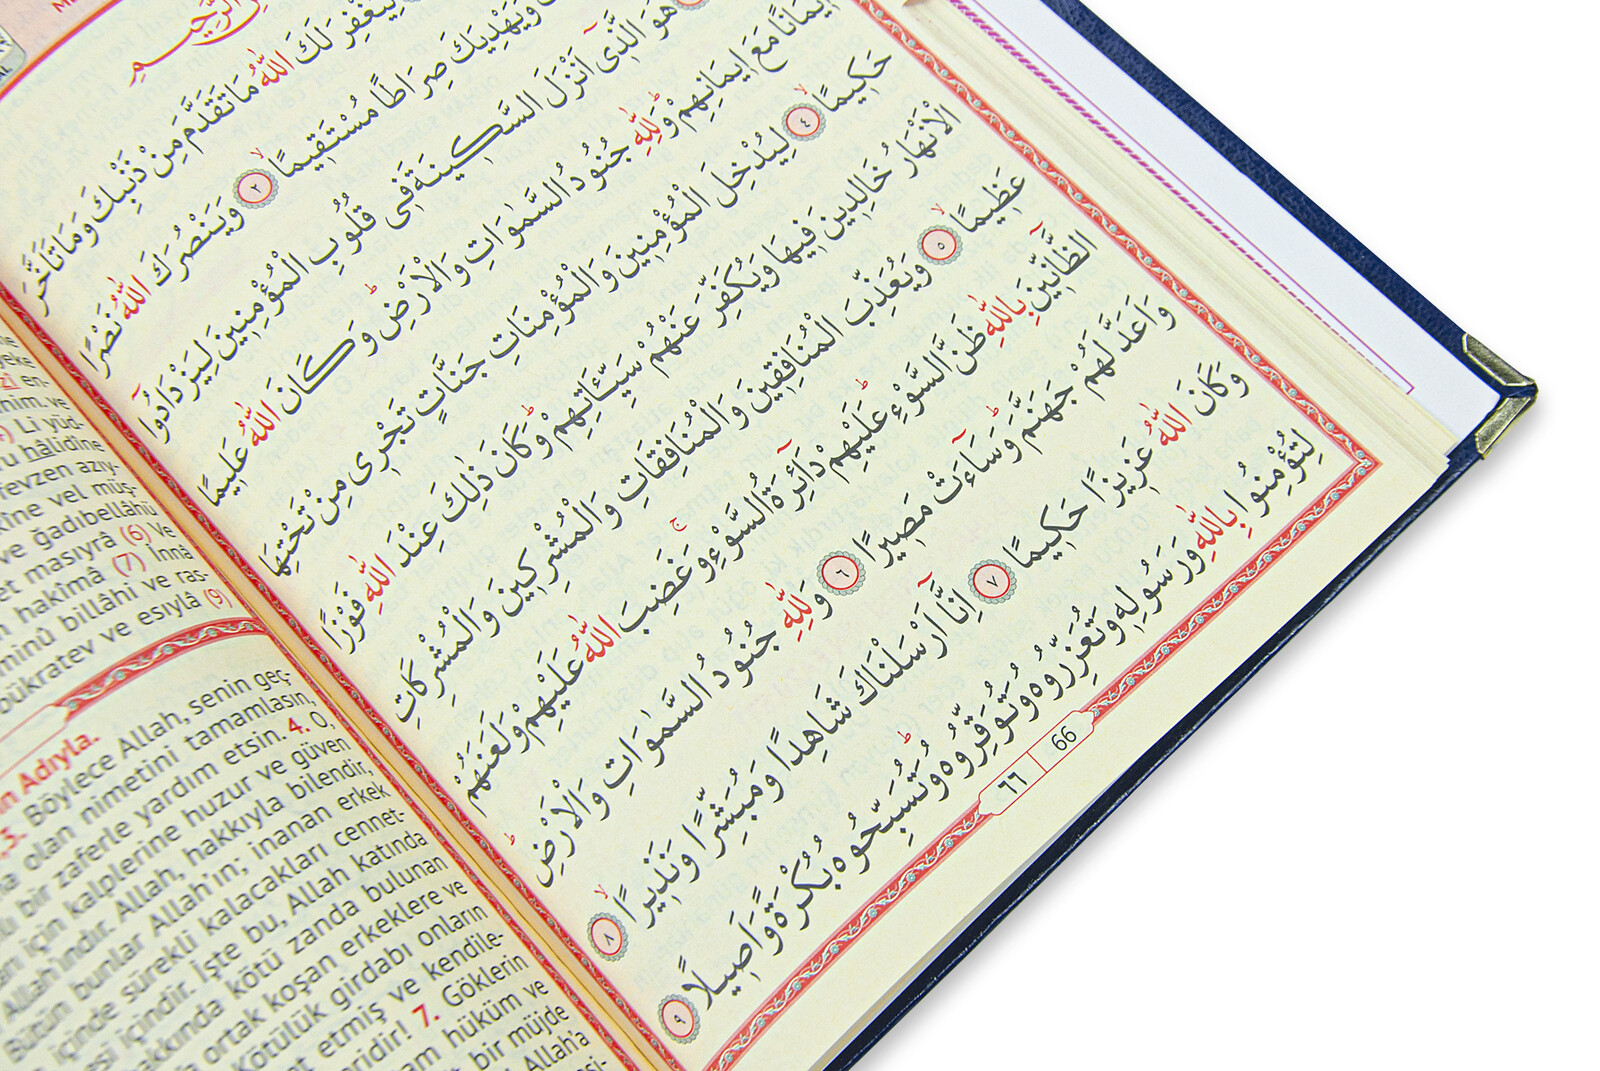 الرَّحِيمِ
لَكَ اللّٰهُ مَا تَقَدَّمَ مِنْ ذَنْبِكَ وَمَا تَاَخَّرَ
وَيَهْدِيَكَ صِرَاطًا مُسْتَقِيمًا ٢ وَيَنْصُرَكَ اللّٰهُ نَصْرًا
هُوَ الَّذِٓى اَنْزَلَ السَّكِينَةَ فِى قُلُوبِ الْمُؤْمِنِينَ لِيَزْدَادُٓوا
اِيمَانًا مَعَ اِيمَانِهِمْ وَلِلّٰهِ جُنُودُ السَّمٰوَاتِ وَالْاَرْضِ وَكَانَ اللّٰهُ عَلِيمًا
حَكِيمًا ٤ لِيُدْخِلَ الْمُؤْمِنِينَ وَالْمُؤْمِنَاتِ جَنَّاتٍ تَجْرِى مِنْ تَحْتِهَا
الْاَنْهَارُ خَالِدِينَ فِيهَا وَيُكَفِّرَ عَنْهُمْ سَيِّـَٔاتِهِمْ وَكَانَ ذٰلِكَ عِنْدَ اللّٰهِ فَوْزًا
عَظِيمًا ٥ وَيُعَذِّبَ الْمُنَافِقِينَ وَالْمُنَافِقَاتِ وَالْمُشْرِكِينَ وَالْمُشْرِكَاتِ
الظَّٓانِّينَ بِاللّٰهِ ظَنَّ السَّوْءِ عَلَيْهِمْ دَٓائِرَةُ السَّوْءِ وَغَضِبَ اللّٰهُ عَلَيْهِمْ وَلَعَنَهُمْ
وَاَعَدَّ لَهُمْ جَهَنَّمَ وَسَٓاءَتْ مَصِيرًا ٦ وَلِلّٰهِ جُنُودُ السَّمٰوَاتِ وَالْاَرْضِ
وَكَانَ اللّٰهُ عَزِيزًا حَكِيمًا ٧ اِنَّٓا اَرْسَلْنَاكَ شَاهِدًا وَمُبَشِّرًا وَنَذِيرًا ٨
لِتُؤْمِنُوا بِاللّٰهِ وَرَسُولِهِ وَتُعَزِّرُوهُ وَتُوَقِّرُوهُ وَتُسَبِّحُوهُ بُكْرَةً وَاَصِيلًا ٩
٦٦ 66
Li yüd-
hâlidîne
fevzen azıy-
kîne vel müş-
ve ğadıbellâhü
masıyrâ (6) Ve
hakîmâ (7) İnnâ
billâhi ve ras-
bükratev ve esıylâ (9)
Adıyla.
Böylece Allah, senin geç
olan nimetini tamamlasın,
bir zaferle yardım etsin. 4. O,
için kalplerine huzur ve güven
Allah'ındır. Allah, hakkıyla bilendir,
Bütün bunlar Allah'ın; inanan erkek
içinde sürekli kalacakları cennet-
içindir. İşte bu, Allah katında
hakkında kötü zanda bulunan
ortak koşan erkeklere ve
Kötülük girdabı onların
etmiş ve kendile-
7. Göklerin
hüküm ve
bir müjde
Allah'a